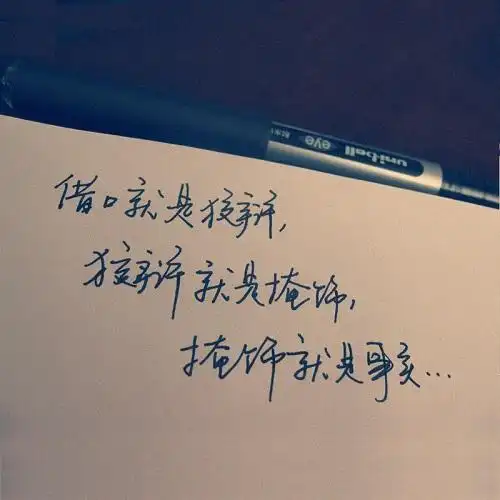 uni-ball eye
借口就是狡辩,
狡辩就是掩饰,
掩饰就是事实...